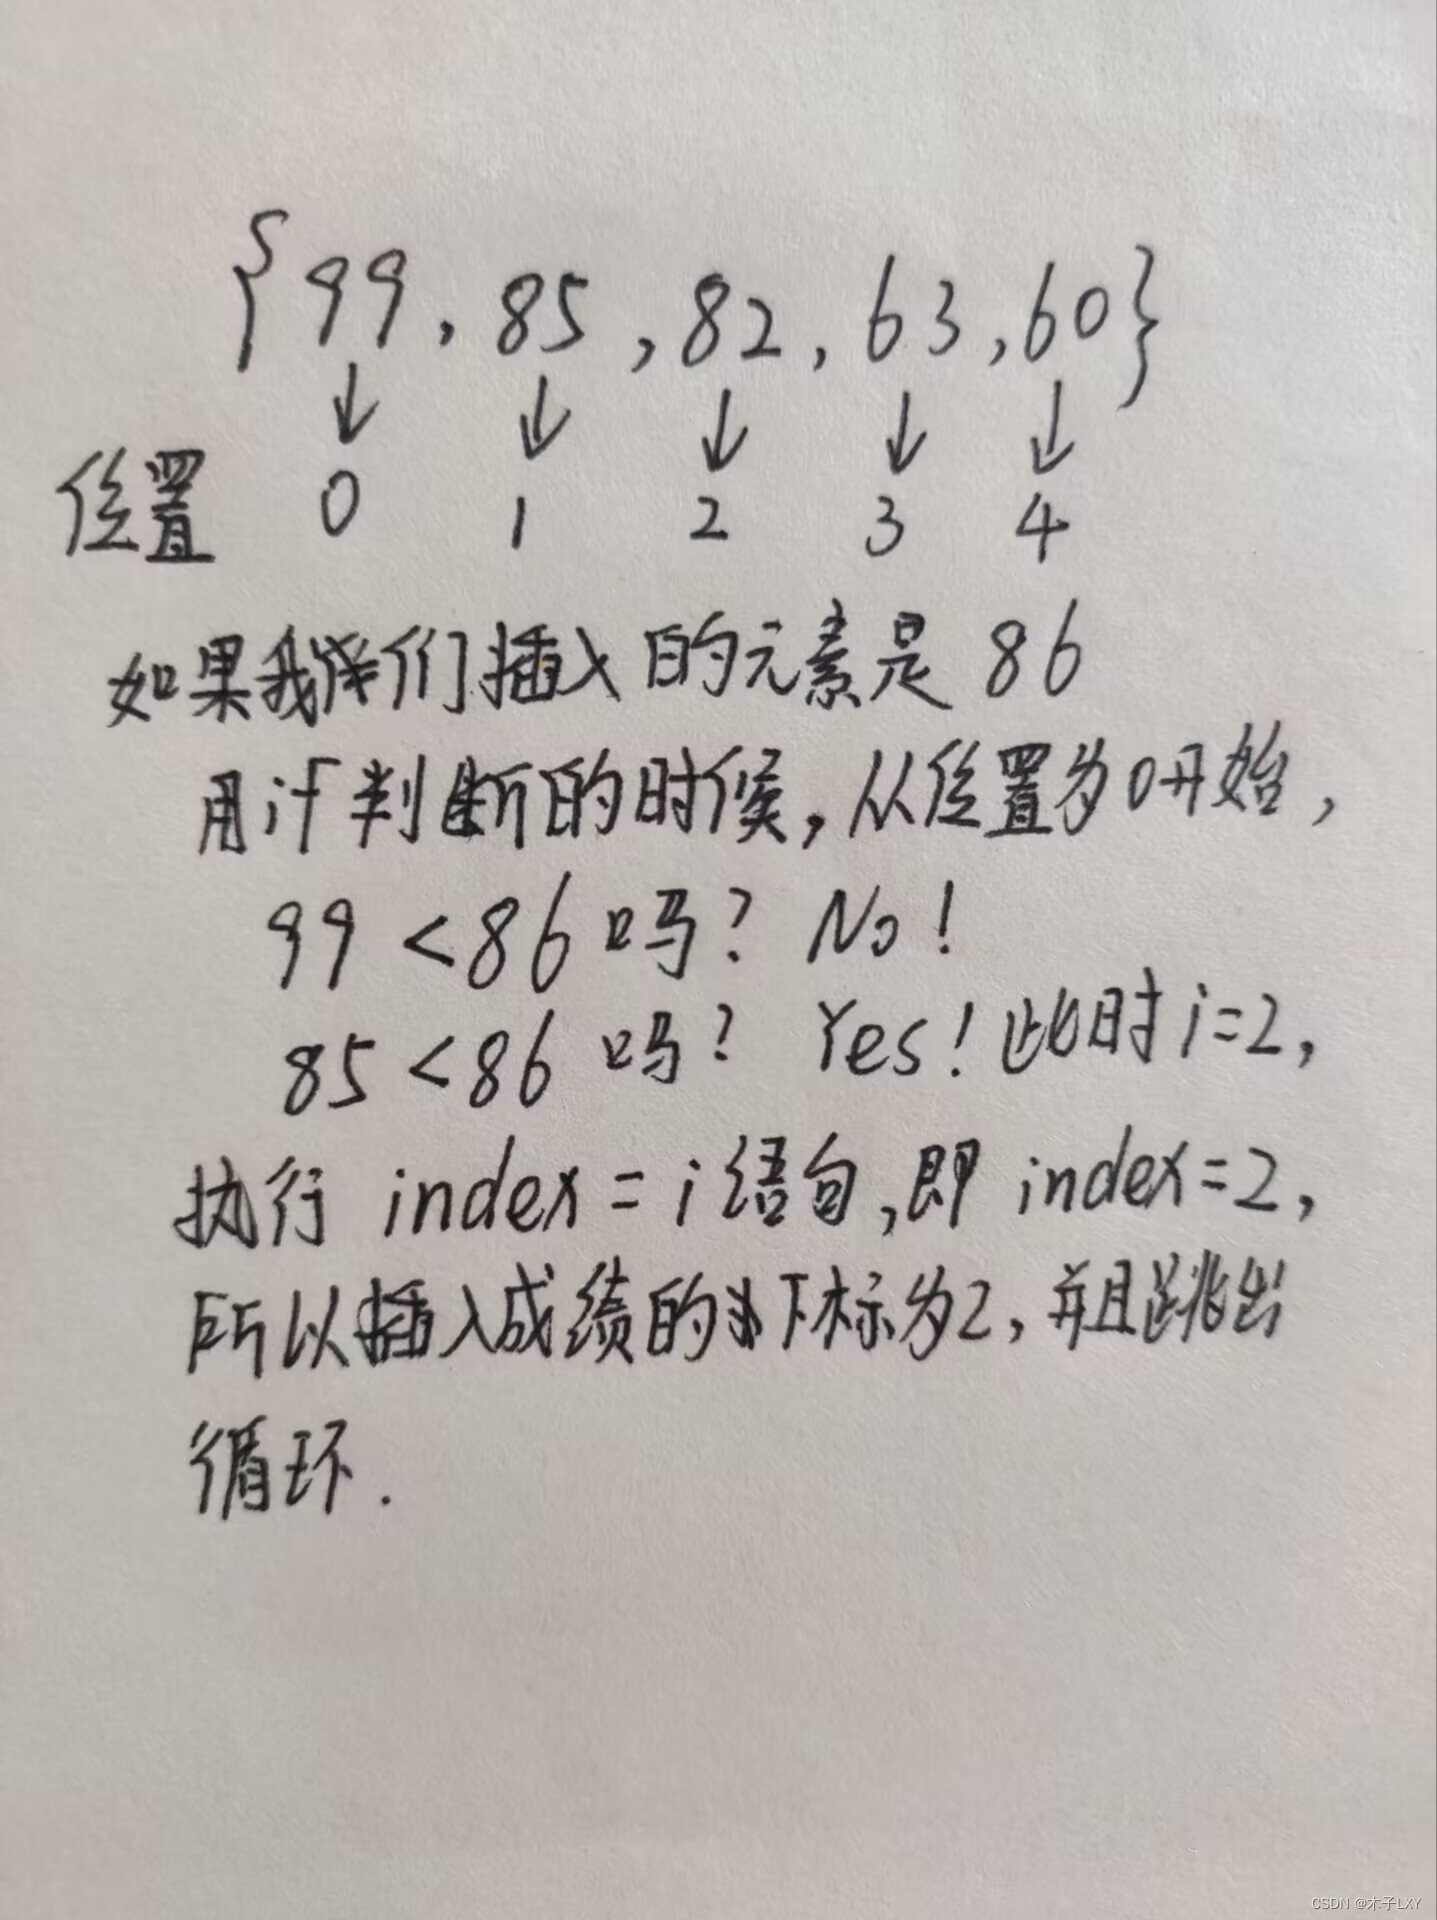 {99, 85, 82, 63, 60}
↓ ↓ ↓ ↓ ↓
位置 0 1 2 3 4
如果我们插入的元素是 86
用if判断的时候,从位置为0开始,
99<86吗? No!
85<86吗? Yes!此时i=2,
执行 index=i语句,即 index=2,
所以插入成绩的下标为2,并且跳出
循环.
CSDN @木子LXY